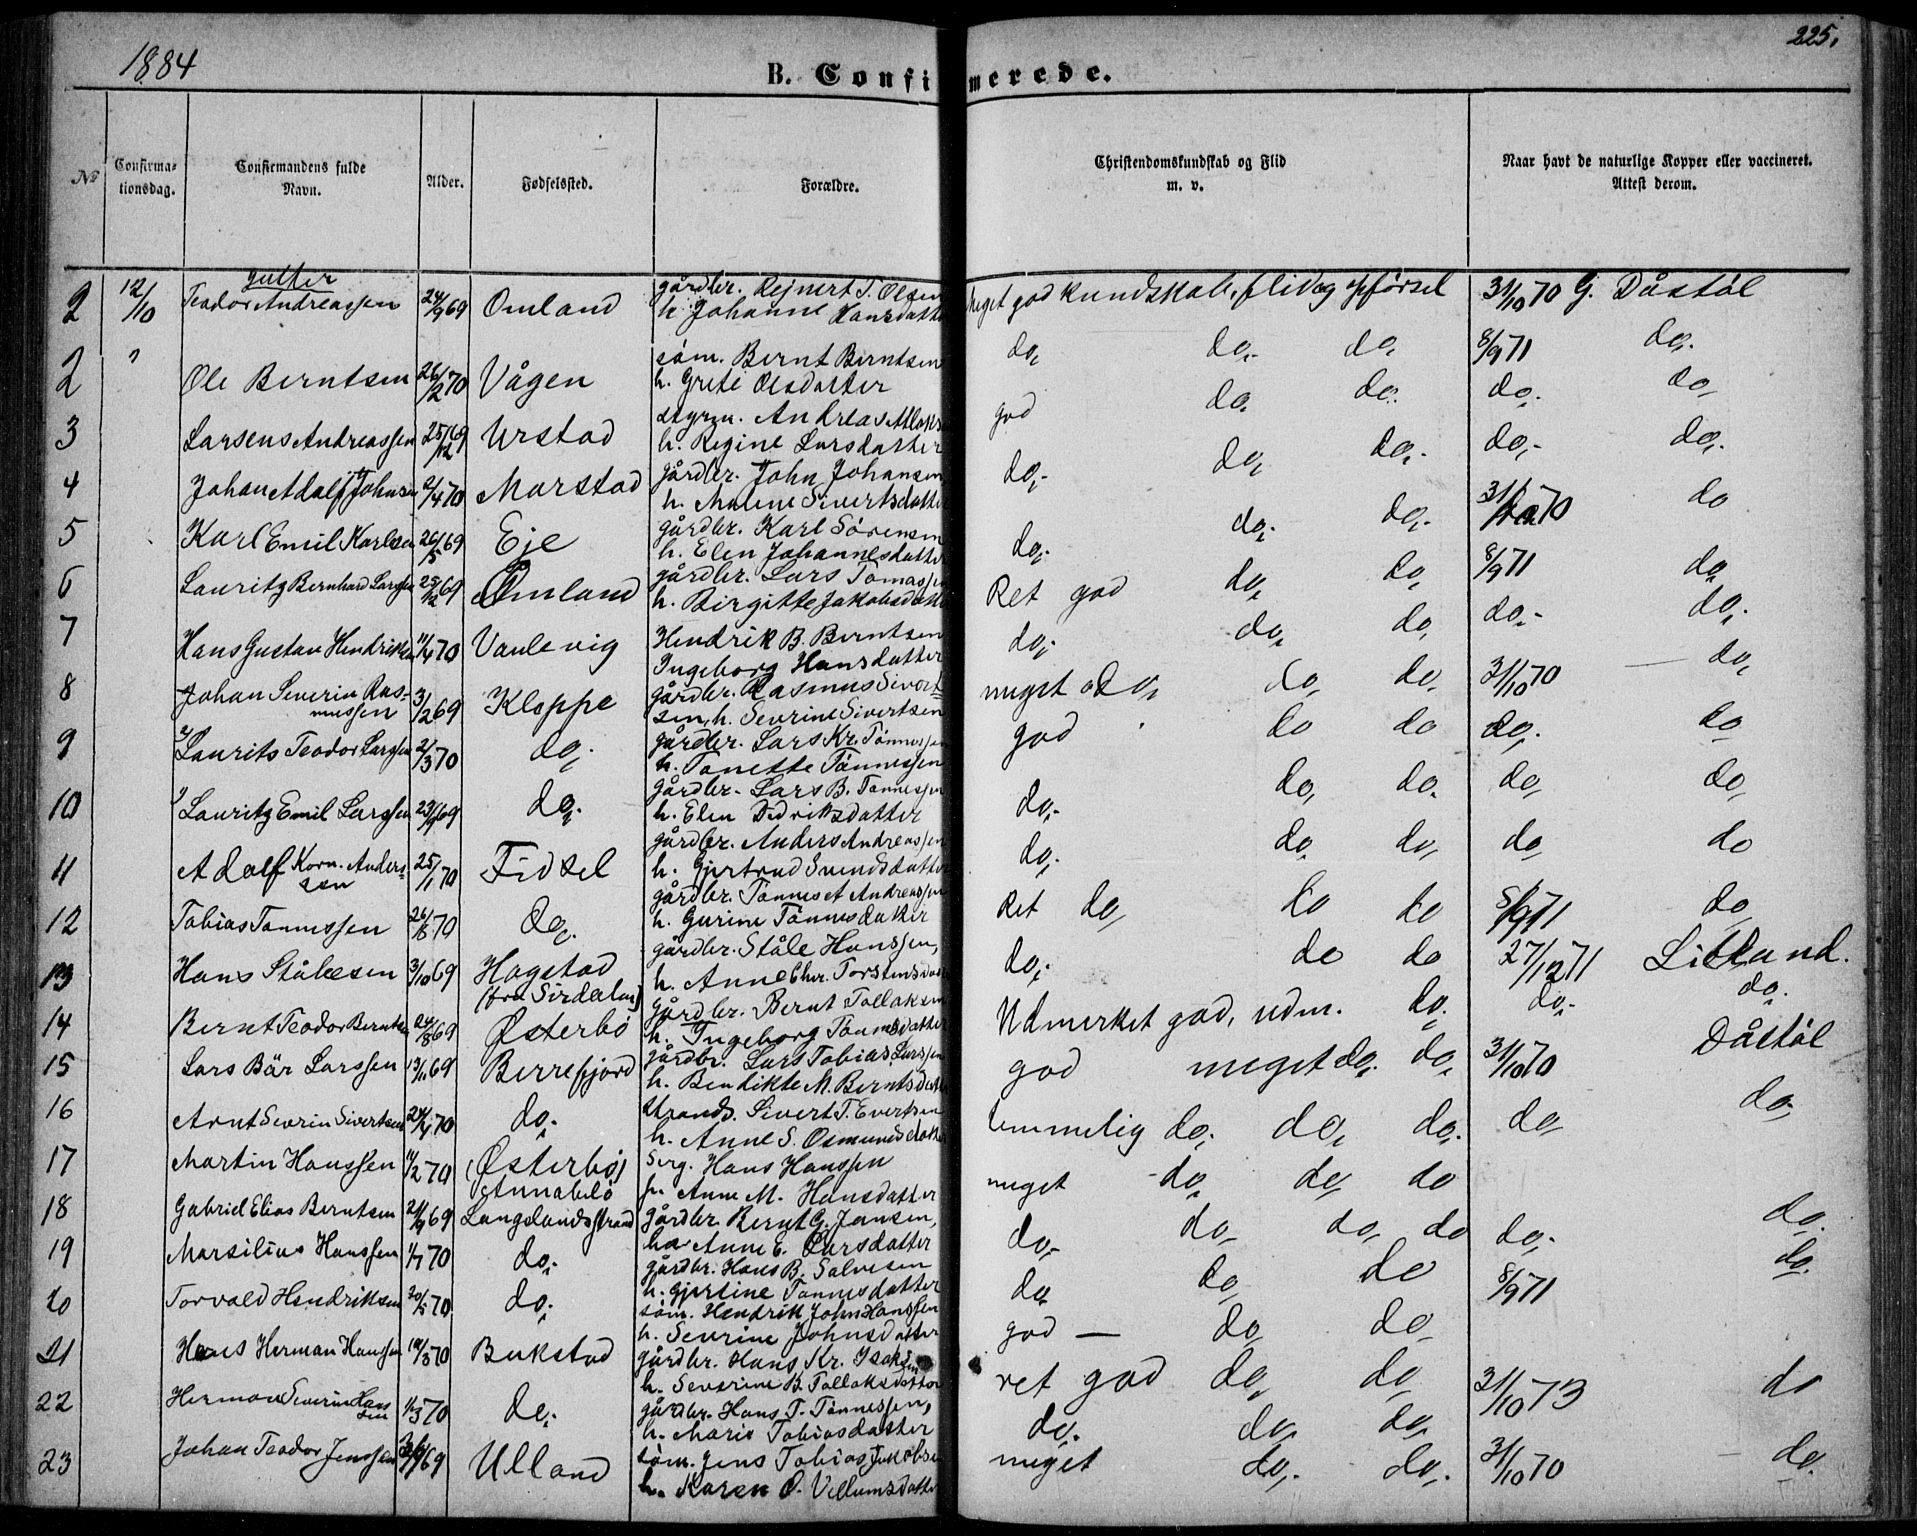 1884
225.
B. Confirmerede.
№
Confirmationsdag.
Confirmandens fulde Navn.
Alder.
Fødselssted.
Forældre.
Christendomskundskab og Flid m. v.
Naar havt de naturlige Kopper eller vaccineret. Attest derom.
gutter
2 12/10 Teodor Andreassen 24/9 69 Omland gårdbr. Rejnert T. Olsen h. Johanne Hansdatter meget god kundskab, flid og opførsel 31/10 70 G. Dåstøl
2 " Ole Berntsen 26/2 70 Vågen søm. Bernt Berntsen h. Grete Olsdatter do, do, do, 8/9 71 do.
3 Larsens Andreassen 25/12 69 Urstad styrm. Andreas h. Regine Larsdatter god do. do. do. do,
4 Johan Adolf Johnsen 2/4 70 Marstad gårdbr. John Johansen h. Malene Sivertsdatter do,- do, do,- do,- do,
5 Karl Emil Karlsen 26/5 69 Eje gårdbr. Karl Sørensen h. Elen Johannesdatter do,- do,- do,- 31/10 70 do
6 Lauritz Bernhard Larssen 25/12 69 Omland gårdbr. Lars Tomassen h. Birgitte Jakobsdatter Ret god do, do, 8/9 71 do,
7 Hans Gustav Hendriksen 11/4 70 Vaulevig Hendrik B. Berntsen Ingeborg Hansdatter do,- do, do, do,- do,
8 Johan Severin Rasmussen 3/12 69 Kleppe gårdbr. Rasmus Sivertsen, h. Sevrine Sivertsen meget do, do, do, 31/10 70 do,
9 Laurits Teodor Larssen 2/3 70 do, gårdbr. Lars Kr. Tønnessen h. Tonette Tønnessen god do do do, do
10 Lauritz Emil Larssen 23/9 69 do, gårdbr. Lars B. Tønnessen h. Elen Didriksdatter do,- do, do, do, do,
11 Adolf Korn. Anderssen 25/1 70 Fidsel gårdbr. Anders Andreassen h. Gjertrud Svendsdatter do, do, do, do, do
12 Tobias Tønnessen 26/8 70 do, gårdbr. Tønnes A Andreassen h. Gurine Tønnesdatter Ret do, do do 8/9 71 do,
13 Hans Stålesen 3/10 69 Hagstad (fra Sirdalen) gårdbr. Ståle Hanssen, h. Anne Chr. Torstensdatter do, do do 27/12 71 Litland.
14 Bernt Teodor Berntsen 24/8 69 Østerbø gårdbr. Bernt Tollaksen h. Ingeborg Tønnesdatter Udmerket god, udm. do. do. do.
15 Lars Bär Larssen 13/11 69 Berrefjord gårdbr. Lars Tobias Larssen h. Bendikte M. Berntsdatter god meget do, do, 31/10 70 Dåstøl
16 Arnt Sevrin Sivertsen 24/1 70 do,- strands. Sivert T. Evertsen h. Anne S. Osmundsdatter temmelig do, do, do, do, do,
17 Martin Hanssen 11/2 70 (Østerbø) Annabelø Serg. Hans Hanssen h. Anne M. Hansdatter meget do, do, do
18 Gabriel Elias Berntsen 21/9 69 Langelandsstrand gårdbr. Bernt G. Jansen, h. Anne E. Larsdatter do,- do, do, do do,- do,
19 Marsilius Hanssen 1/7 70 do,- gårdbr. Hans B. Salvesen h. Gjertine Tønnesdatter do, do, do 8/9 71 do.
20 Torvald Hendriksen 20/5 70 do, søm. Hendrik John Hanssen h. Sevrine Johnsdatter god — do, do,
21 Hans Herman Hanssen 19/3 70 Bukstad gårdbr. Hans Kr. Isaksen h. Severine B. Tollaksdatter ret god do, do, 31/10 73 do
22 Herman Severin Hanssen 1/3 70 do,- gårdbr. Hans T. Tønnessen, h. Marie Tobiasdatter do. do, do,
23 Johan Teodor Jenssen 69 Ulland søm. Jens Tobias Jakobsen h. Karen O. Villumsdatter meget do,- do,- 31/10 70 do.